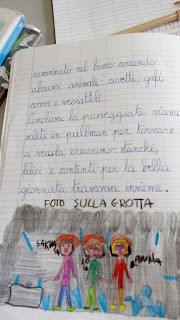 camminato nel bosco cercando
alcuni animali: civette, gufi
corvi e scoiattoli.
Conclusa la passeggiata siamo
saliti in pullman per tornare
a scuola eravamo: stanchi,
felici e contenti per la bella
giornata trascorsa insieme.
FOTO SULLA GROTTA
SARA
IO
ANNA